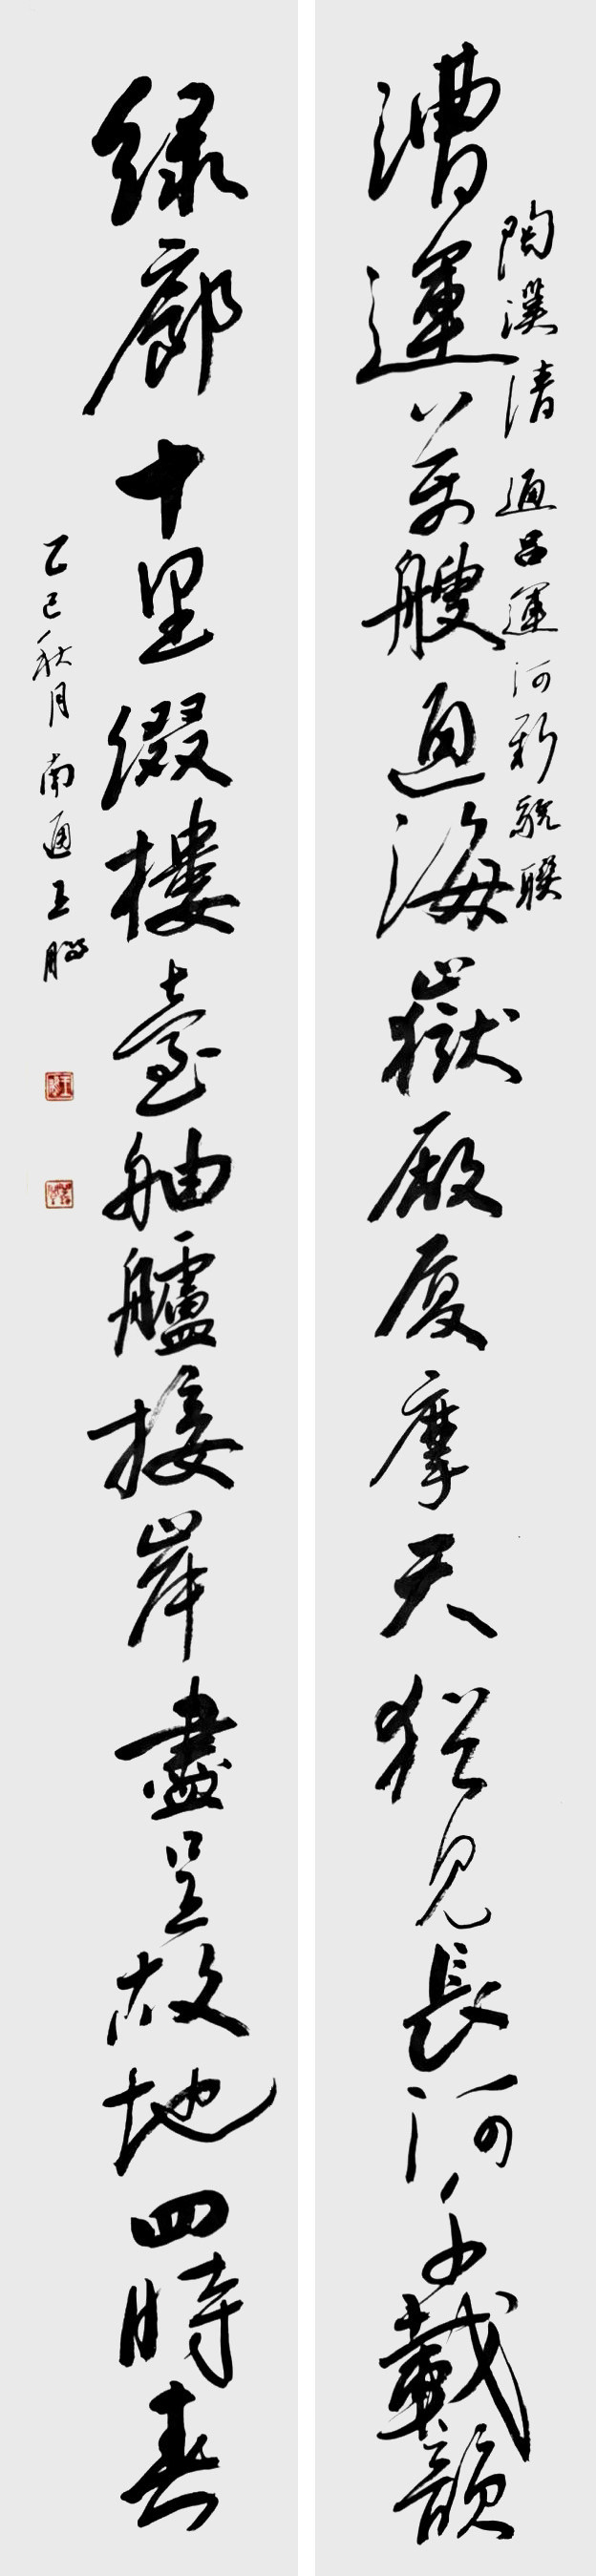 陶漢清 通呂運河新貌聯
漕運萬艘通海嶽厰厦摩天猶見長河千載韻
綠廊十里綴樓臺舳艫接岸盡呈故地四時春
乙巳秋月南通王